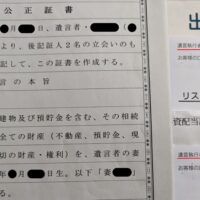 公正証書
月 日、遺言者・
より、後記証人2名の立会いのも
記して、この証書を作成する。
言の本旨
建物及び預貯金を含む、その相続
全ての財産(不動産、預貯金、現
切の財産・権利)を、遺言者の妻
月 日生。以下「妻
る。
出
遺言執行者
お客様の
リス
資配当
遺言執行
お客様の